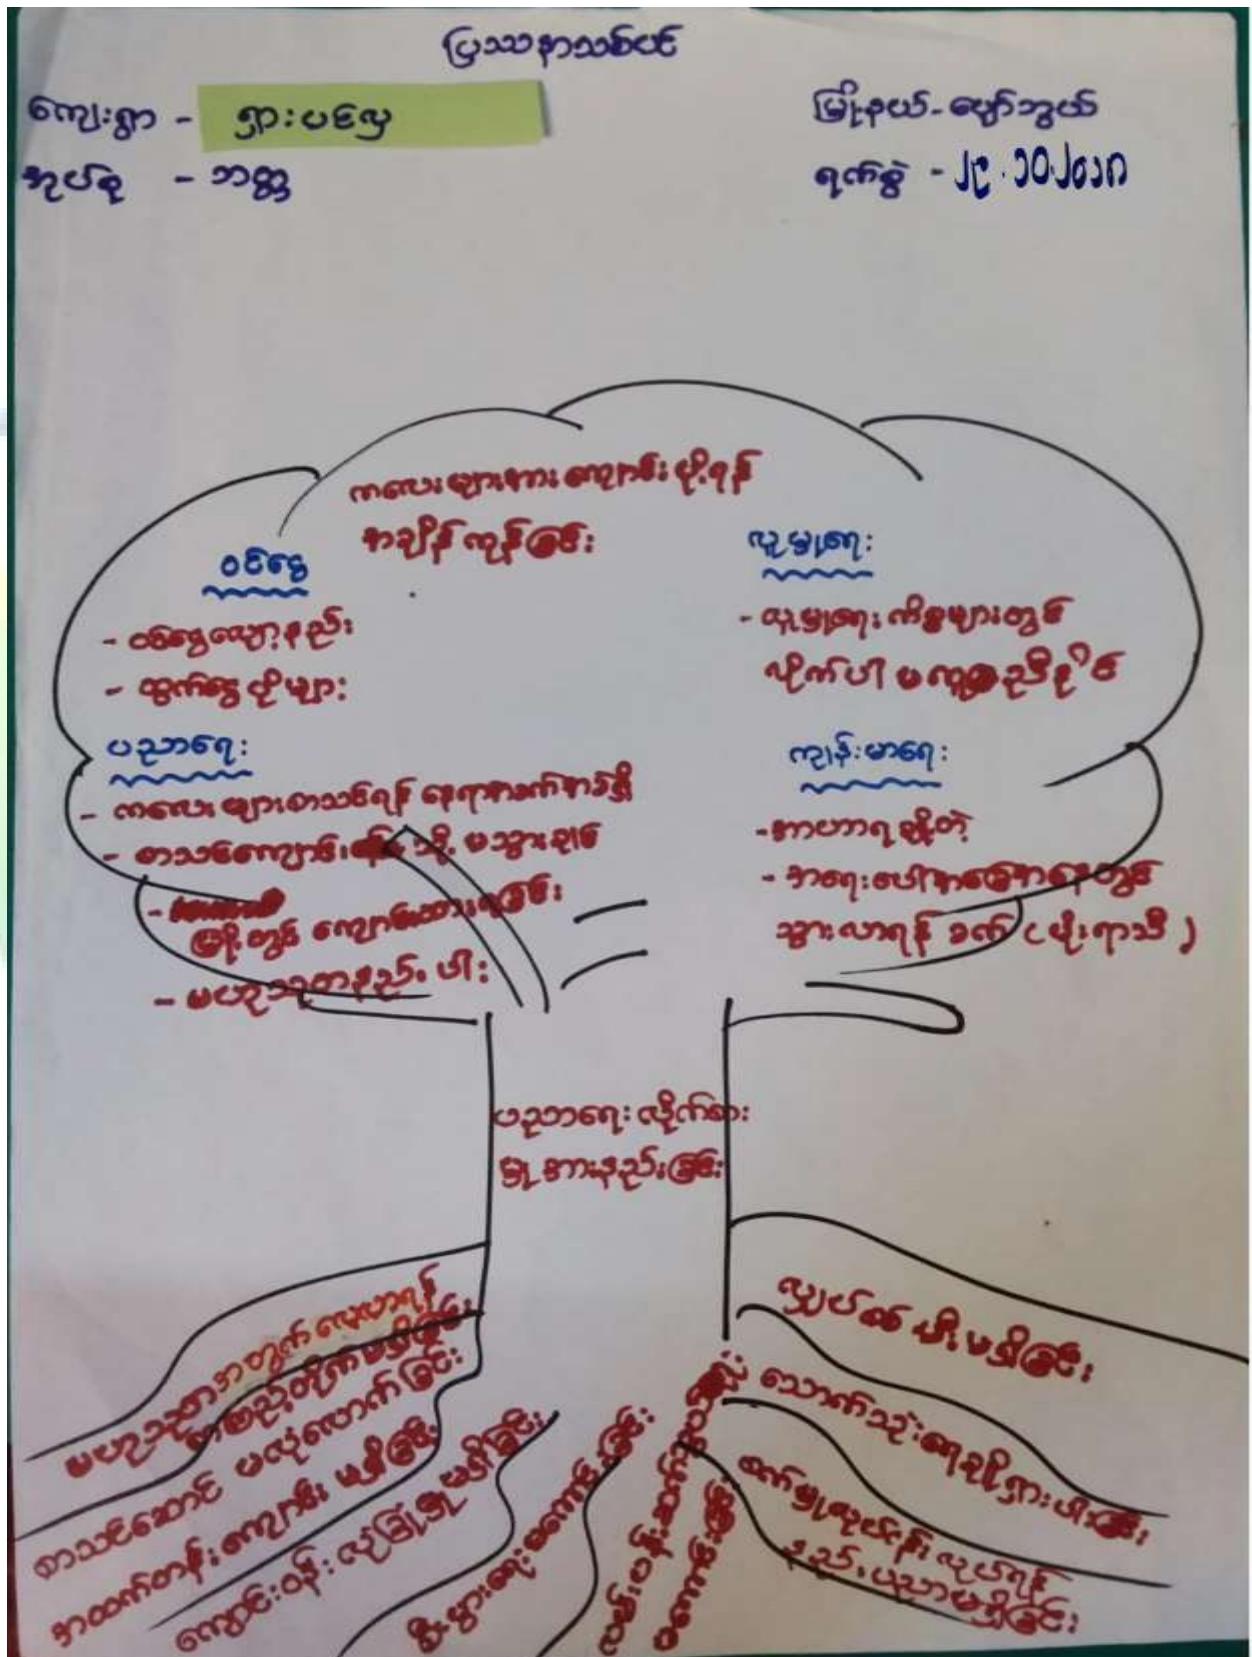 ပြဿနာသစ်ပင်
ကျေးရွာ - ရှားပင်လှ
မြို့နယ် - ပျော်ဘွယ်
အုပ်စု - ဘတ္တ
ရက်စွဲ - ၂၄.၁၀.၂၀၁၈
ကလေးများအား ကျောင်းပို့ရန်
အချိန်ကုန်ခြင်း
ဝင်ငွေ
- ဝင်ငွေလျော့နည်း
- ထွက်ငွေပိုများ
ပညာရေး
- ကလေးများစာသင်ရန် နေရာအခက်အခဲရှိ
- စာသင်ကျောင်း သို့ မသွားချင်
- မြို့တွင် ကျောင်းထားရခြင်း
- ဗဟုသုတနည်းပါး
လူမှုရေး
- လူမှုရေးကိစ္စများတွင်
လိုက်ပါ မကူညီနိုင်
ကျန်းမာရေး
- အာဟာရချို့တဲ့
- အရေးပေါ်အခြေအနေတွင်
သွားလာရန် ခက် (မိုးရာသီ)
ပညာရေးလိုက်စား
မှု အားနည်းခြင်း
ဗဟုသုတအတွက် လေ့လာရန်
စာကြည့်တိုက်မရှိခြင်း
စာသင်ဆောင် မလုံလောက်ခြင်း
အထက်တန်းကျောင်း မရှိခြင်း
ကျောင်းဝန်း လုံခြုံမှုမရှိခြင်း
စီးပွားရေးမကောင်းခြင်း
လမ်းပန်းဆက်သွယ်ရေး
မကောင်းခြင်း
လျှပ်စစ်မီးမရှိခြင်း
သောက်သုံးရေရှားပါးခြင်း
စက်မှုလုပ်ငန်း လုပ်ရန်
နည်းပညာမရှိခြင်း